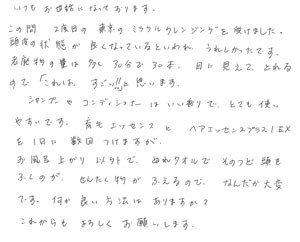 いつもお世話になっております。
この間 2度目の 東京のミラクルクレンジングを受けました。
頭皮の状態が良くなっているといわれ、うれしかったです。
老廃物の量は多く 30分で30本、目に見えて とれる
ので「これは、すごい!!」と思います。
シャンプーやコンディショナーは いい香りで、とても使い
やすいです。育毛エッセンスと ヘアエッセンスプラス1EX
を1日に 数回 つけますが、
お風呂上がり 以外で、ぬれタオルで そのつど頭を
ふくのが、せんたく物が ふえるので、なんだか大変
です。何か良い方法は ありますか?
これからも よろしく お願いします。